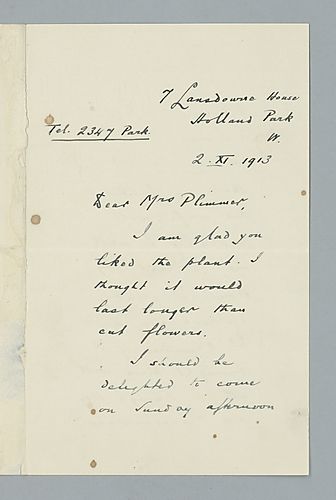 7 Lansdowne House
Holland Park
W.
Tel. 2347 Park.
2.XI.1913
Dear Mrs Plimmer,
I am glad you
liked the plant. I
thought it would
last longer than
cut flowers.
I should be
delighted to come
on Sunday afternoon